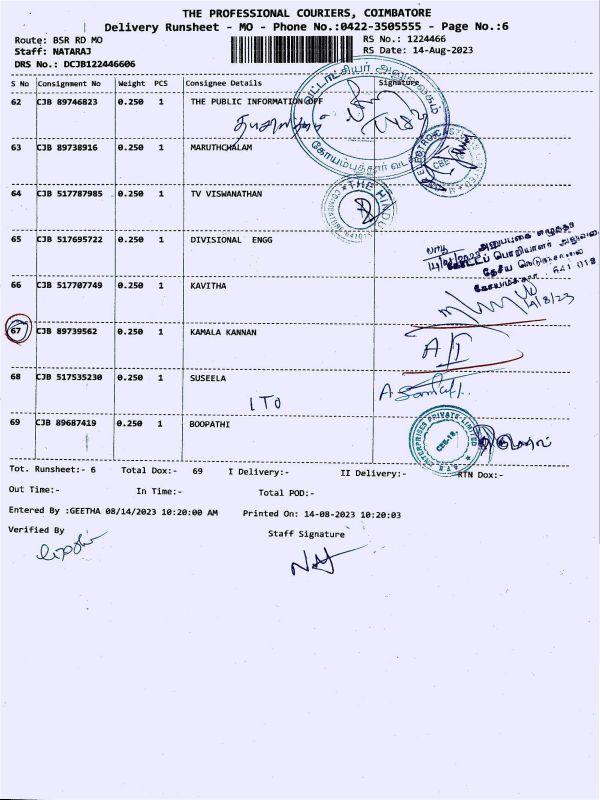 THE PROFESSIONAL COURIERS, COIMBATORE
Delivery Runsheet - MO - Phone No.:0422-3505555 - Page No.:6
Route: BSR RD MO
RS No.: 1224466
Staff: NATARAJ
RS Date: 14-Aug-2023
DRS No.: DCJB122446606
S No Consignment No Weight PCS Consignee Details Signature
62 CJB 89746823 0.250 1 THE PUBLIC INFORMATION OFF
வட்டாட்சியர் அலுவலகம்
கோயம்புத்தூர் வடக்கு
63 CJB 89738916 0.250 1 MARUTHCHALAM
CBE
64 CJB 517787985 0.250 1 TV VISWANATHAN
THE HINDU
65 CJB 517695722 0.250 1 DIVISIONAL ENGG
கோட்டப் பொறியாளர்
தேசிய நெடுஞ்சாலை
641 018
14/8/23
66 CJB 517707749 0.250 1 KAVITHA
67 CJB 89739562 0.250 1 KAMALA KANNAN
68 CJB 517535230 0.250 1 SUSEELA
ITO
69 CJB 89687419 0.250 1 BOOPATHI
ENTERPRISES PRIVATE LIMITED
CBE-18.
Tot. Runsheet:- 6 Total Dox:- 69 I Delivery:- II Delivery:- RTN Dox:-
Out Time:- In Time:- Total POD:-
Entered By :GEETHA 08/14/2023 10:20:00 AM Printed On: 14-08-2023 10:20:03
Verified By
Staff Signature